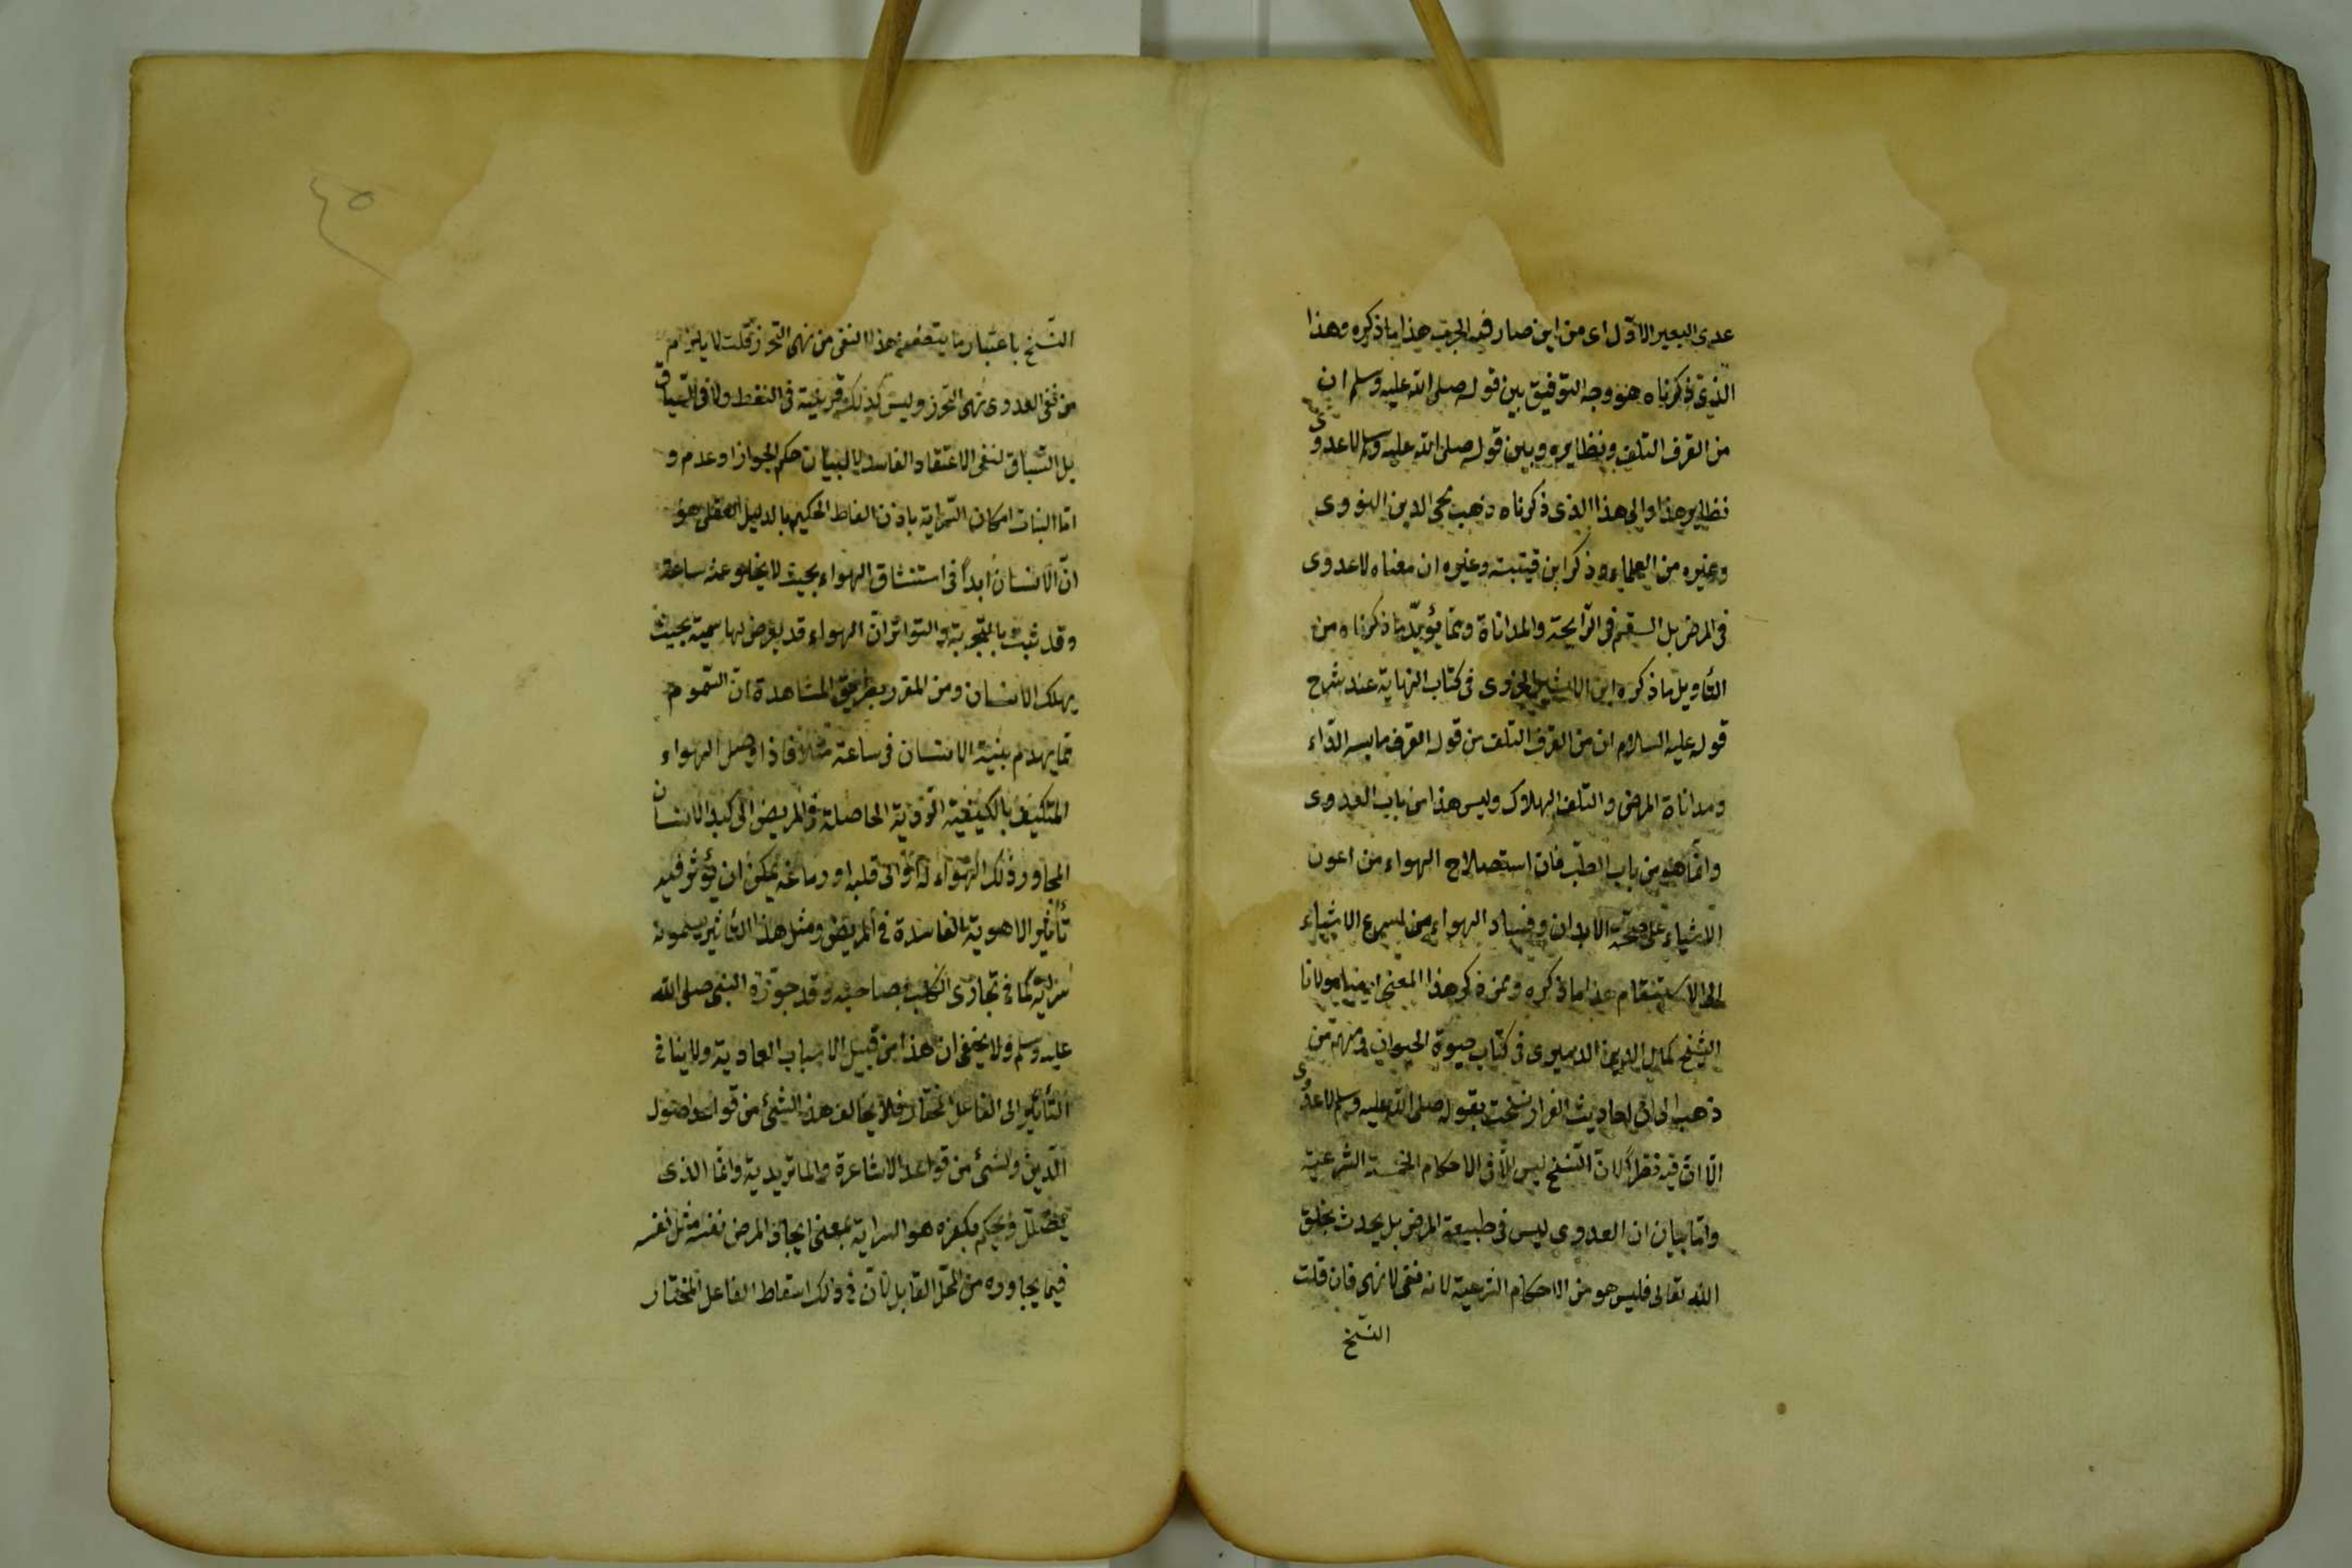 عدى البعير الاوّل اى من اين صار فيه الجرب هذا ما ذكره وهذا
الذى ذكرناه هو وجه التوفيق بين قوله صلى الله عليه وسلم ان
من القرف التلف ونظايره وبين قوله صلى الله عليه وسلم لا عدوى
نظاير هذا والى هذا الذى ذكرناه ذهب محى الدين النووى
وغيره من العلماء وذكر ابن قتيبة وغيره ان معناه لا عدوى
فى المرض بل السقم فى الرّايحة والمداناة وممّا يؤيّد ما ذكرناه من
التأويل ما ذكره ابن الاثير الجزرى فى كتاب النهاية عند شرح
قوله عليه السلام ان من القرف التلف من قوله القرف ملابسه الدّاء
ومداناة المرض والتلف الهلاك وليس هذا من باب العدوى
وانّما هو من باب الطبّ فان استصلاح الهواء من اعون
الاشياء على صحّة الابدان وفساد الهواء من اسرع الاشياء
الى الاسقام هذا ما ذكره وممن ذكر هذا المعنى ايضا مولانا
الشيخ كمال الدين الدميرى فى كتاب حيوة الحيوان ومنهم من
ذهب الى ان احاديث الفرار نسخت بقوله صلى الله عليه وسلم لا عدوى
الّا انّ فيه نظراً لانّ النّسخ ليس الّا فى الاحكام الخمسة الشرعيّة
وامّا بيان ان العدوى ليس فى طبيعة المرض بل يحدث بخلق
الله تعالى فليس هو من الاحكام الشرعية لانه نفى لا نهى فان قلت
النسّخ
٤٥
النّسخ باعتبار ما يتضمنه هذا النفى من نهى التحرز قلت لا يلزم
من نفى العدوى نهى التحرز وليس كذلك قرينة فى اللفظ ولا فى السّياق
بل السّياق لنفى الاعتقاد الفاسد لا لبيان حكم الجواز او عدمه و
امّا اثبات امكان السّراية باذن الفاطر الحكيم بالدليل العقلى هو
انّ الانسان ابداً فى استنشاق الهواء بحيث لا يخلو عنه ساعة
وقد ثبت بالتجربة والتواتر انّ الهواء قد يعرض لها سمية بحيث
يهلك الانسان ومن المقرر بطريق المشاهدة انّ السّموم
ممّا يهدم بنية الانسان فى ساعة مثلا فاذا وصل الهواء
المتكيّف بالكيفيّة الحاصلة فى المريض الى كبد الانسان
المجاور ذلك الهواء له او الى قلبه او دماغه يمكن ان يؤثر فيه
تأثير الاهوية الفاسدة فى المريض ومثل هذا التأثير يسمونه
سراية كما فى تجارى الكلب بصاحبه وقد جوّزه النبى صلى الله
عليه وسلم ولا يخفى ان هذا من قبيل الاسباب العادية ولا ينافى
التأثير الى الفاعل المختار فلا يخالف هذا الشىء من قواعد اصول
الدّين ولشىء من قواعد الاشاعرة والماتريدية وانّما الذى
يضلّل ويحكم بكفره هو السراية بمعنى ايجاد المرض نفسه مثل نفسه
فيما يجاوره من المحلّ القابل لانّ فى ذلك اسقاط الفاعل المختار